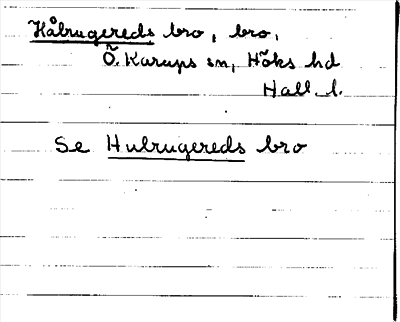 Hålrugereds bro, bro,
Ö. Karups sn, Höks hd
Hall. l.
Se Hulrugereds bro